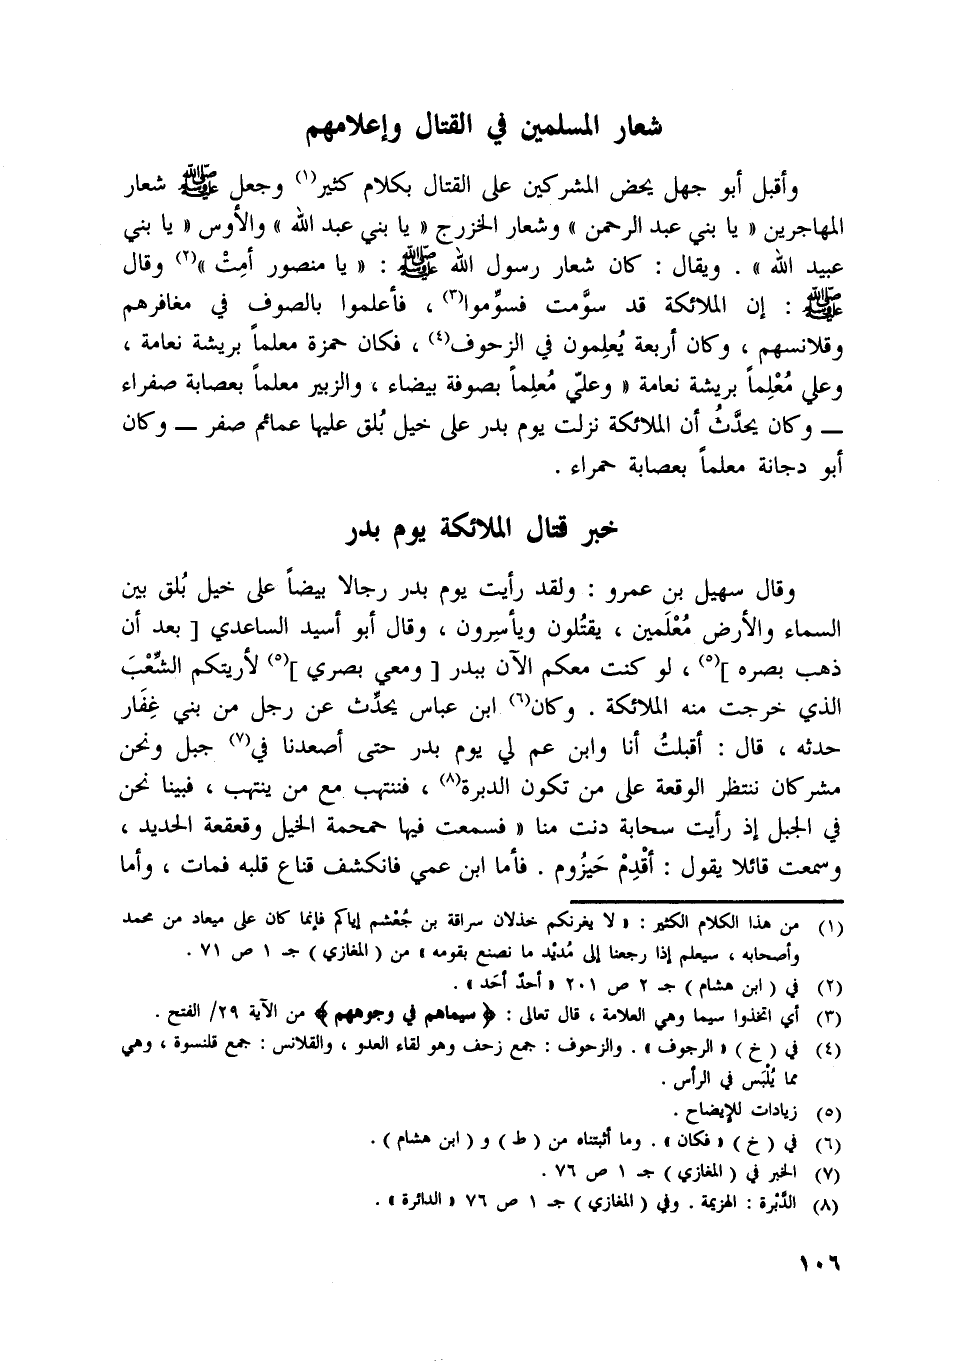 شعار المسلمين في القتال وإعلامهم
وأقبل أبو جهل يحض المشركين على القتال بكلام كثير(١) وجعل ﷺ شعار
المهاجرين « يا بني عبد الرحمن » وشعار الخزرج « يا بني عبد الله » والأوس « يا بني
عبيد الله » . ويقال : كان شعار رسول الله ﷺ : « يا منصور أمِتْ »(٢) وقال
ﷺ : إن الملائكة قد سوَّمت فسوِّموا(٣) ، فأعلموا بالصوف في مغافرهم
وقلانسهم ، وكان أربعة يُعلِمون في الزحوف(٤) ، فكان حمزة معلماً بريشة نعامة ،
وعلي مُعْلِماً بريشة نعامة « وعليّ مُعلِماً بصوفة بيضاء ، والزبير معلماً بعصابة صفراء
— وكان يحدَّثُ أن الملائكة نزلت يوم بدر على خيل بُلق عليها عمائم صفر — وكان
أبو دجانة معلماً بعصابة حمراء .
خبر قتال الملائكة يوم بدر
وقال سهيل بن عمرو : ولقد رأيت يوم بدر رجالا بيضاً على خيل بُلق بين
السماء والأرض مُعْلَمين ، يقتُلون ويأسِرون ، وقال أبو أسيد الساعدي [ بعد أن
ذهب بصره ](٥) ، لو كنت معكم الآن ببدر [ ومعي بصري ](٥) لأريتكم الشِّعْبَ
الذي خرجت منه الملائكة . وكان(٦) ابن عباس يحدِّث عن رجل من بني غِفَار
حدثه ، قال : أقبلتُ أنا وابن عم لي يوم بدر حتى أصعدنا في(٧) جبل ونحن
مشركان ننتظر الوقعة على من تكون الدبرة(٨) ، فننتهب مع من ينتهب ، فبينا نحن
في الجبل إذ رأيت سحابة دنت منا « فسمعت فيها حمحمة الخيل وقعقعة الحديد ،
وسمعت قائلا يقول : أقْدِمْ حَيزُوم . فأما ابن عمي فانكشف قناع قلبه فمات ، وأما
(١) من هذا الكلام الكثير : « لا يغرنكم خذلان سراقة بن جُعْشم إياكم فإنما كان على ميعاد من محمد
وأصحابه ، سيعلم إذا رجعنا إلى مُديْد ما نصنع بقومه » من ( المغازي ) جـ ١ ص ٧١ .
(٢) في ( ابن هشام ) جـ ٢ ص ٢٠١ « أحدٌ أحَد » .
(٣) أي اتخذوا سيما وهي العلامة ، قال تعالى : ﴿ سيماهم في وجوههم ﴾ من الآية ٢٩/ الفتح .
(٤) في ( خ ) « الرجوف » . والزحوف : جمع زحف وهو لقاء العدو ، والقلانس : جمع قلنسوة ، وهي
مما يُلْبَس في الرأس .
(٥) زيادات للإيضاح .
(٦) في ( خ ) « فكان » . وما أثبتناه من ( ط ) و ( ابن هشام ) .
(٧) الخبر في ( المغازي ) جـ ١ ص ٧٦ .
(٨) الدَّبْرة : الهزيمة . وفي ( المغازي ) جـ ١ ص ٧٦ « الدائرة » .
١٠٦